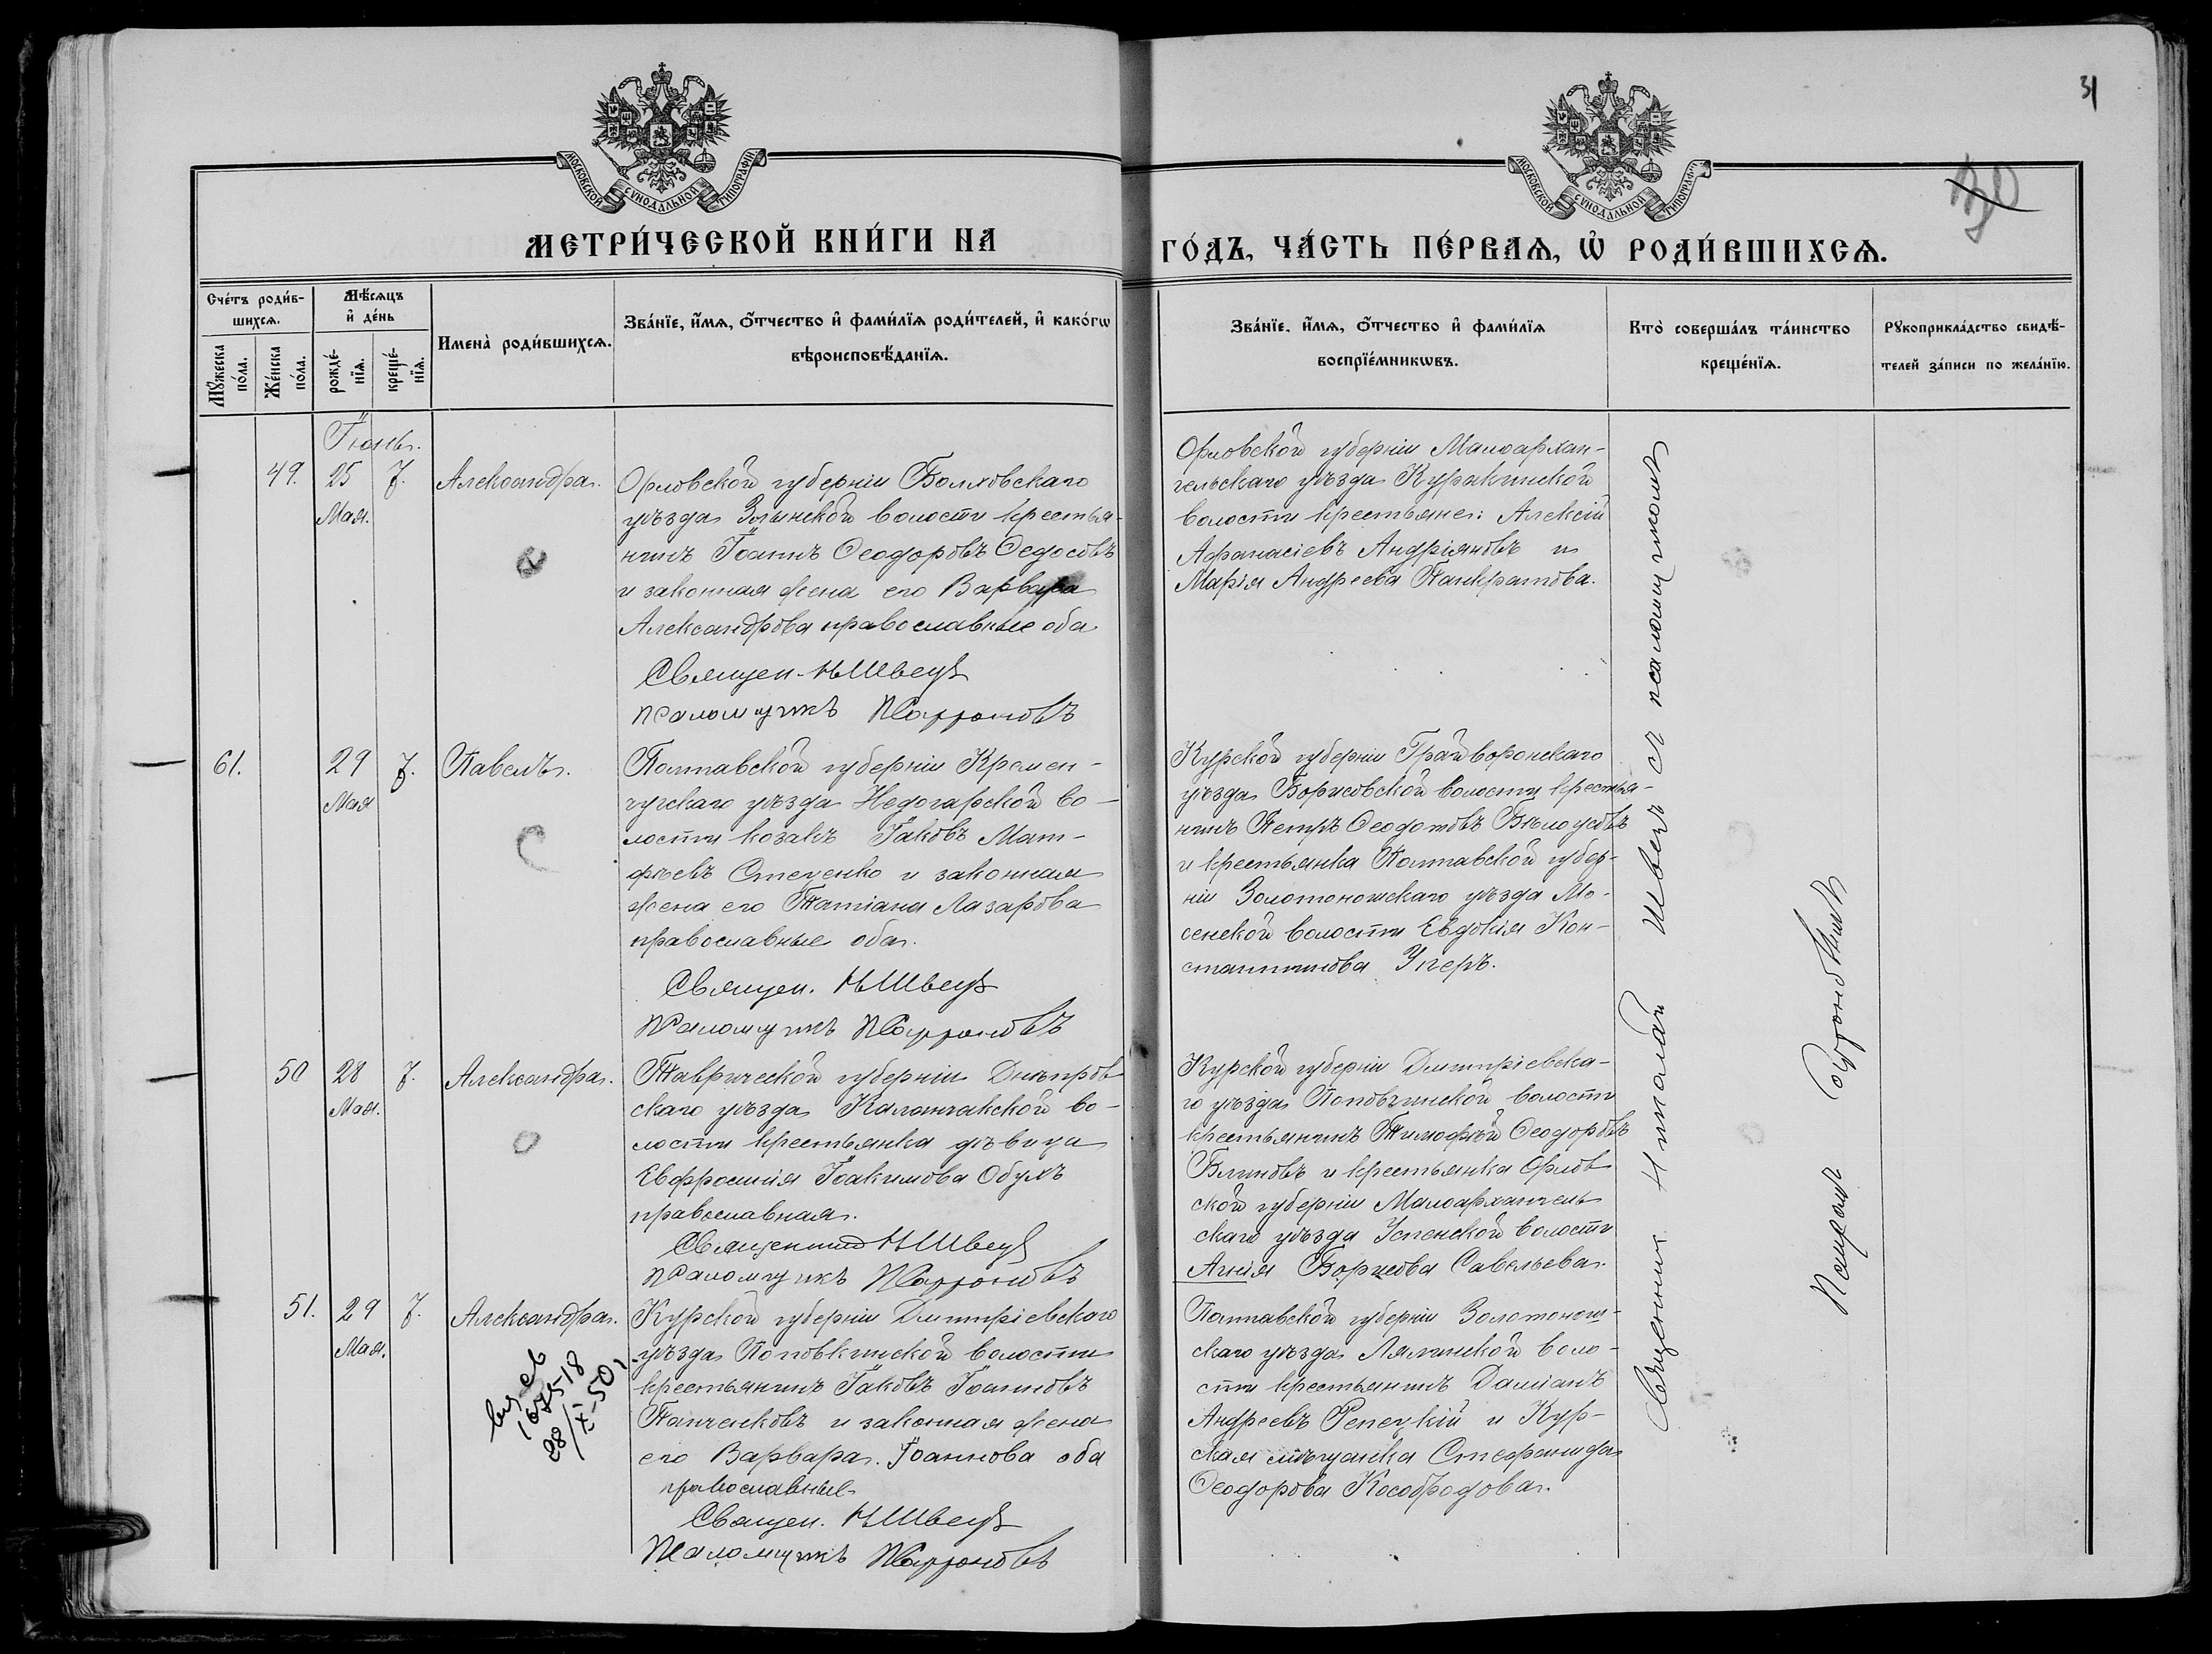 31
30
МОСКОВСКОЙ СѴНОДАЛЬНОЙ ТИПОГРАФІИ
МОСКОВСКОЙ СѴНОДАЛЬНОЙ ТИПОГРАФІИ
МЕТРИ́ЧЕСКОЙ КНИ́ГИ НА ГО́ДЪ, ЧА́СТЬ ПЕ́РВАѦ, Ѡ҆ РОДИ́ВШИХСѦ.
Счéтъ роди́вшихсѧ.
Мꙋ́жеска по́ла.
Же́нска по́ла.
Мѣ́сѧцъ и҆ де́нь
рожде́нїѧ.
креще́нїѧ.
Имена̀ роди́вшихсѧ.
Зва́нїе, и҆́мѧ, ѻ҆́тчество и҆ фами́лїѧ роди́телей, и҆ како́гѡ
вѣроисповѣ́данїѧ.
Зва́нїе, и҆́мѧ, ѻ҆́тчество и҆ фами́лїѧ
воспрїе́мникѡвъ.
Кто̀ соверша́лъ та́инство
креще́нїѧ.
Рꙋкоприкла́дство свидѣ́-
телей за́писи по жела́нїю.
Іюнь.
49. 25 7. Александра.
Мая.
Орловской губерніи Болховскаго
уѣзда Злынской волости крестья-
нинъ Іоаннъ Ѳеодоровъ Ѳедосовъ
и законная жена его Варвара
Александрова православные оба
Священ. Н Швецъ
Псаломщикъ П Сафроновъ
Орловской губерніи Малоархан-
гельскаго уѣзда Куракинской
волости крестьяне: Алексій
Афанасіевъ Андріяновъ и
Марія Андреева Панкратова.
61. 29 7. Павелъ.
Мая
Полтавской губерніи Кремен-
чугскаго уѣзда Недогарской во-
лости козакъ Іаковъ Мат-
фѣевъ Стеценко и законная
жена его Татіана Лазарова
православные оба.
Священ. Н Швецъ
Псаломщикъ П Сафроновъ
Курской губерніи Грайворонскаго
уѣзда Борисовской волости крестья-
нинъ Петръ Ѳеодотовъ Бѣлоусовъ
и крестьянка Полтавской губер-
ніи Золотоношскаго уѣзда
волости Евдокія Кон-
стантинова
50 28 7. Александра.
Мая.
Таврической губерніи Днѣпров
скаго уѣзда Каланчакской во-
лости крестьянка дѣвица
Евфросинія Іоакимова Обухъ
православная.
Священникъ Н Швецъ
Псаломщикъ П Сафроновъ
Курской губерніи Димитріевска-
го уѣзда Поповкинской волости
крестьянинъ Тимофѣй Ѳеодоровъ
Блиновъ и крестьянка Орлов
ской губерніи Малоархангель
скаго уѣзда Успенской волости
Агнія Борисова Савельева.
51. 29 7. Александра.
Мая.
28/IX-50г
Курской губерніи Димитріевскаго
уѣзда Поповкинской волости
крестьянинъ Іаковъ Іоанновъ
Папченковъ и законная жена
его Варвара Іоаннова оба
православные
Священ. Н Швецъ
Псаломщикъ П Сафроновъ
Полтавской губерніи Золотонош-
скаго уѣзда Лялинской воло-
сти крестьянинъ Даміанъ
Андреевъ Репецкій и Кур-
ская мѣщанка Стефанида
Ѳеодорова Кособродова.
Священникъ Николай Швецъ съ псаломщикомъ
Сафроновымъ